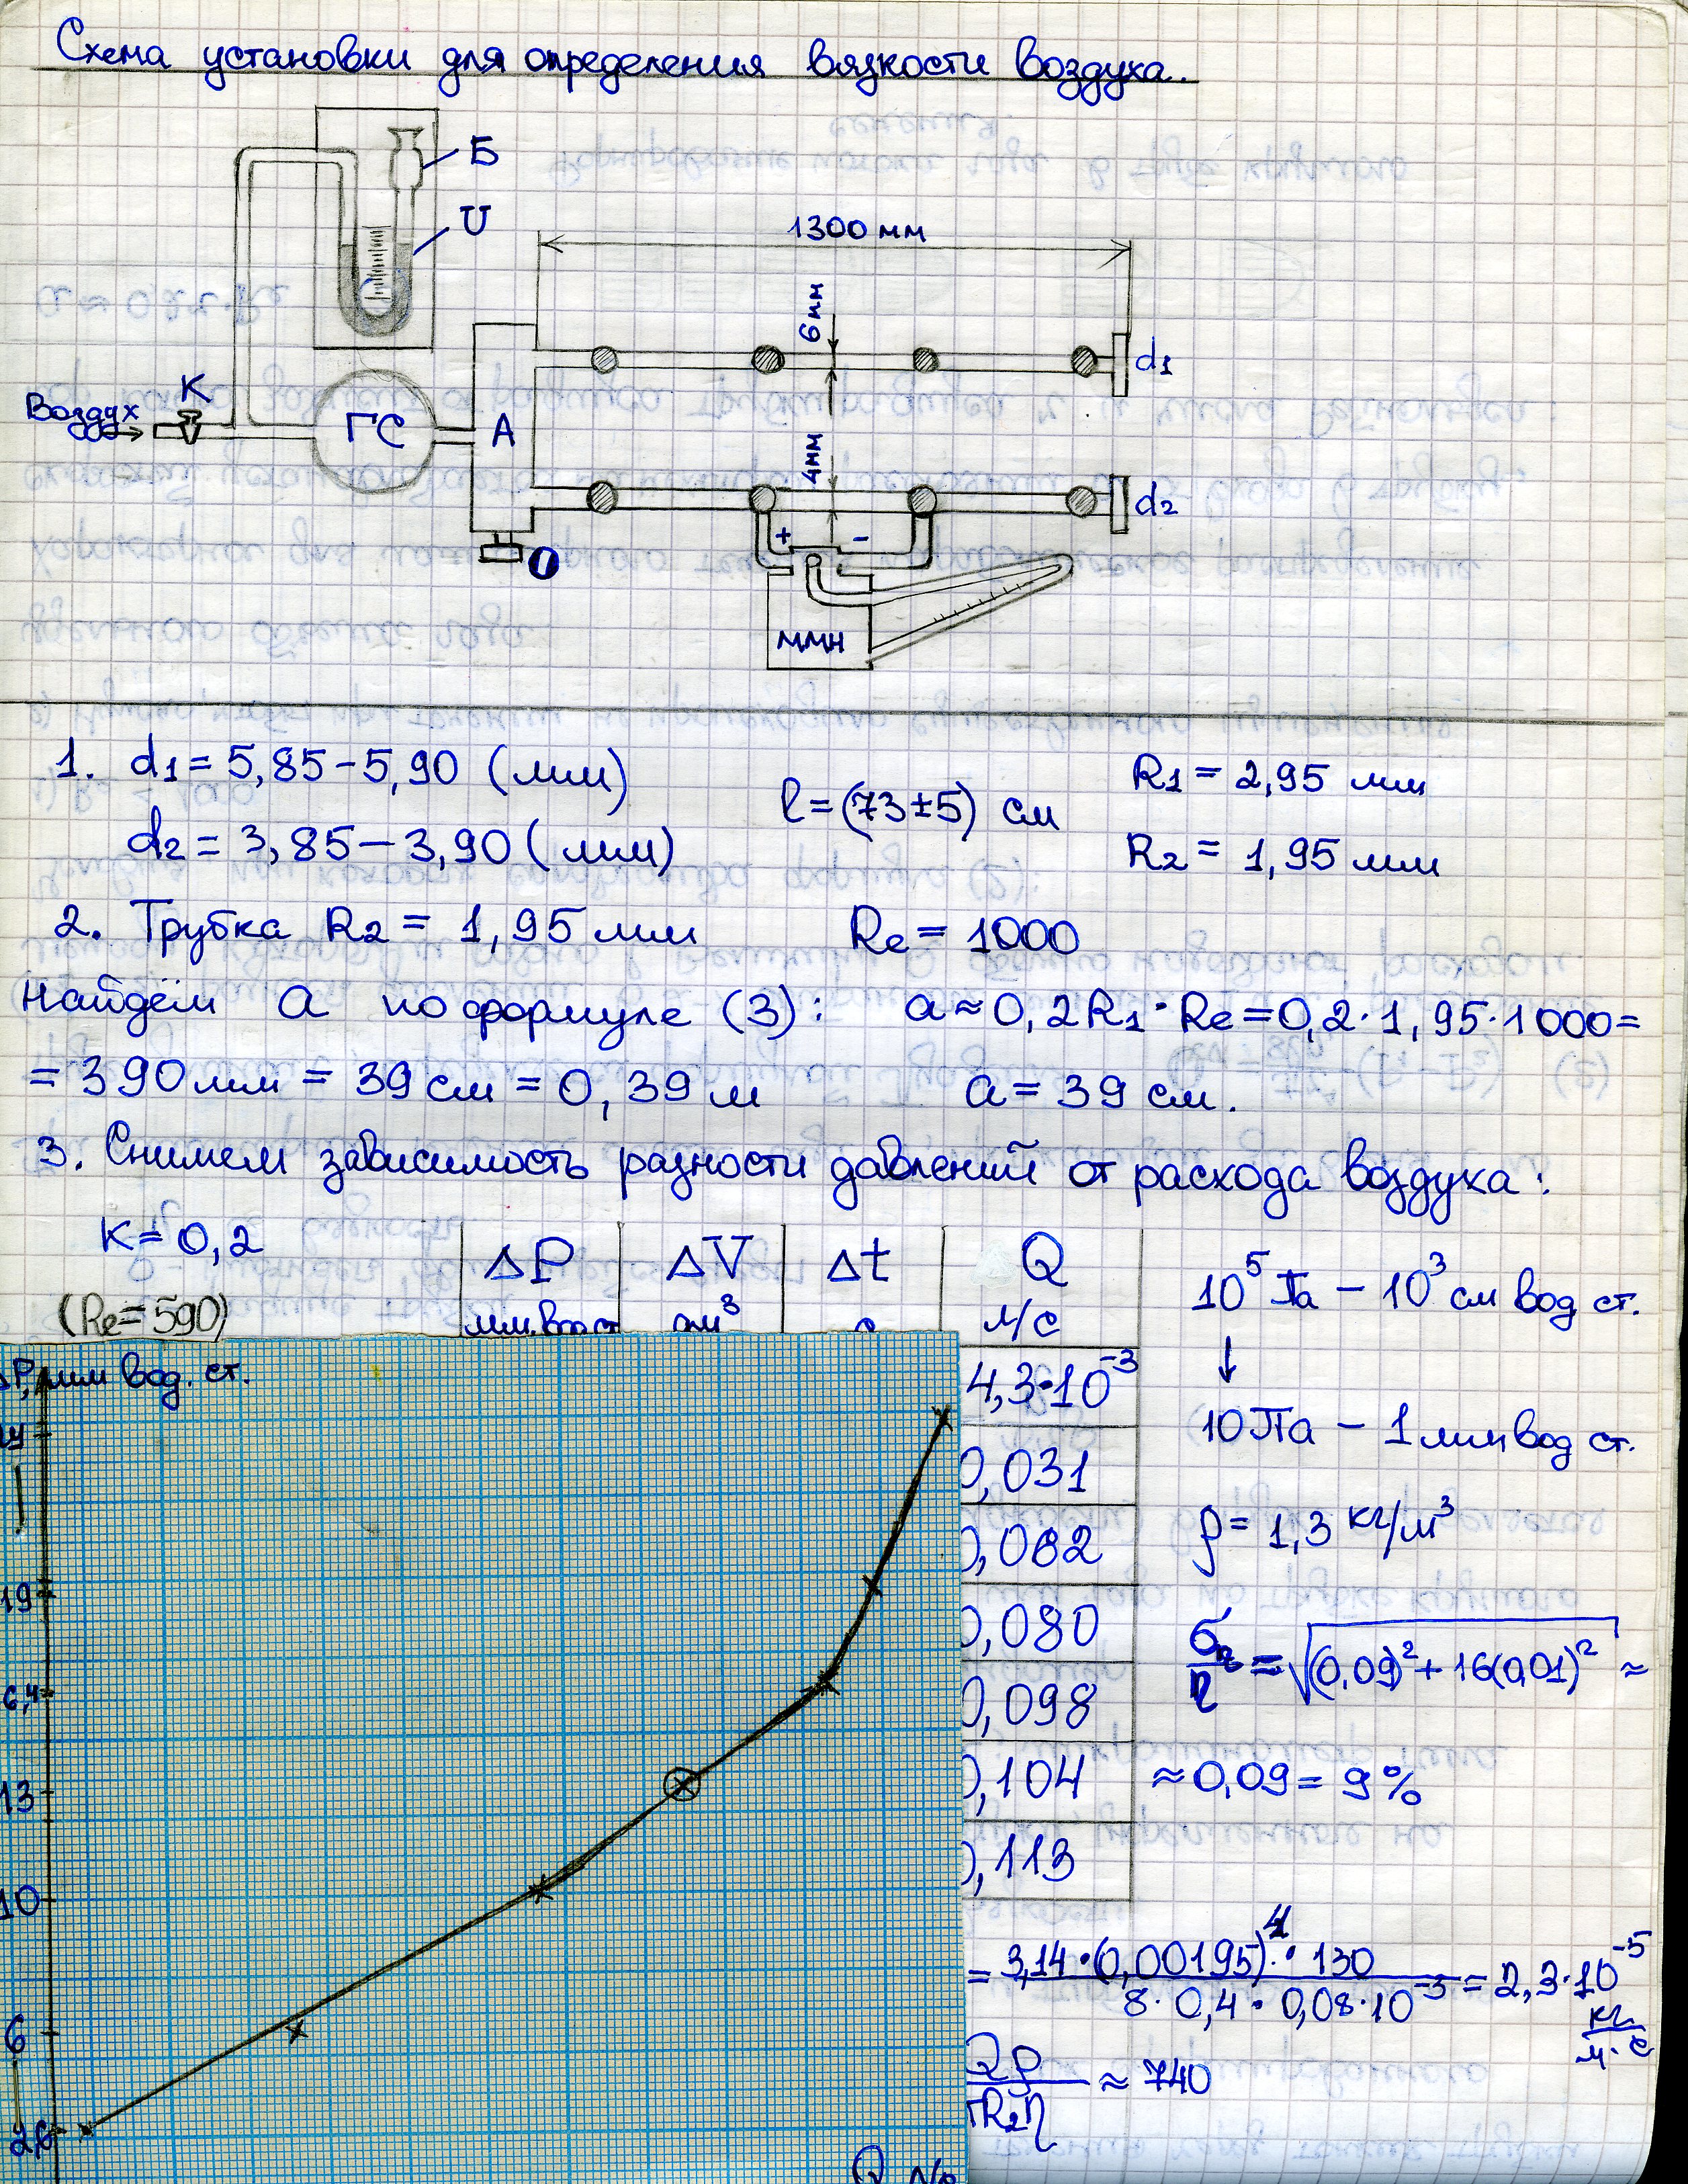 Схема установки для определения вязкости воздуха.
Б
U
1300 мм
6 мм
d1
К
Воздух
ГС
А
4мм
d2
+ -
О
ММН
1. d1 = 5,85 - 5,90 (мм)
R1 = 2,95 мм
l = (73 ± 5) см
d2 = 3,85 - 3,90 (мм)
R2 = 1,95 мм
2. Трубка R2 = 1,95 мм Re = 1000
Найдём a по формуле (3): a ≈ 0,2R1·Re = 0,2·1,95·1000 =
= 390 мм = 39 см = 0,39 м a = 39 см.
3. Снимем зависимость разности давлений от расхода воздуха:
K = 0,2
(Re = 590)
ΔP ΔV Δt Q
л/с
4,3·10⁻³
0,031
0,062
0,080
0,098
0,104
0,113
10⁵ Па - 10³ см вод ст.
↓
10 Па - 1 мм вод ст.
ρ = 1,3 кг/м³
ση/η = √((0,09)² + 16(0,01)²) ≈
≈ 0,09 = 9%
ΔP, мм вод. ст.
24
19
6,4
13
10
6
2,6
Q
= 3,14·(0,00195)⁴·130 / 8·0,4·0,08·10⁻³ = 2,3·10⁻⁵ кг/м·с
Qρ/πR2η ≈ 740